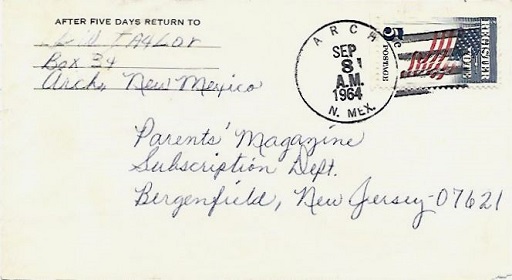 AFTER FIVE DAYS RETURN TO
TAYLOR
Box 34
Arch, New Mexico
ARCH
SEP
8
A.M.
1964
N. MEX.
5c
POSTAGE
REGISTER
VOTE
Parents' Magazine
Subscription Dept.
Bergenfield, New Jersey-07621